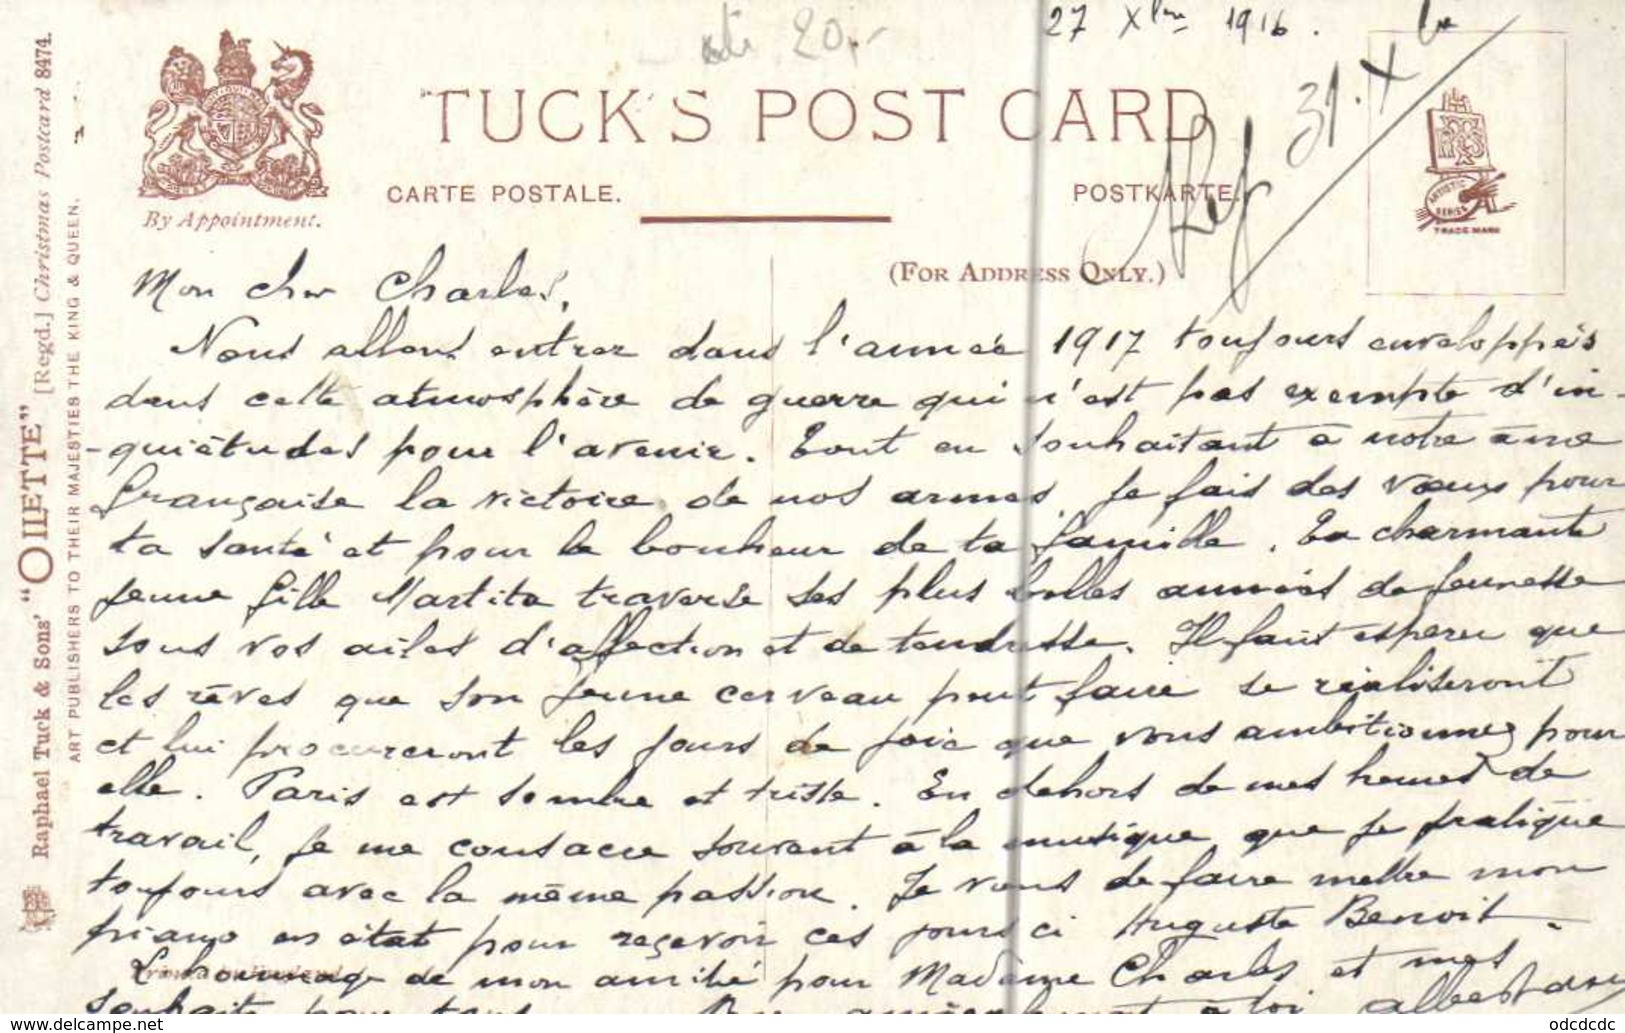 27 Xbre 1916.
20,-
Rep 31.Xbre
TUCK'S POST CARD
CARTE POSTALE.
POSTKARTE.
By Appointment.
(FOR ADDRESS ONLY.)
ARTISTIC SERIES
TRADE MARK
Raphael Tuck & Sons' "OILETTE" [Regd.] Christmas Postcard 8474.
ART PUBLISHERS TO THEIR MAJESTIES THE KING & QUEEN.
Mon cher Charles,
Nous allons entrer dans l'année 1917 toujours enveloppés
dans cette atmosphère de guerre qui n'est pas exempte d'in-
-quiétudes pour l'avenir. Tout en souhaitant à notre âme
française la victoire de nos armes, je fais des vœux pour
ta santé et pour le bonheur de ta famille. La charmante
jeune fille Martita traverse ses plus belles années de jeunesse
sous vos ailes d'affection et de tendresse. Il faut esperer que
les rêves que son jeune cerveau peut faire se réaliseront
et lui procureront les jours de joie que vous ambitionnez pour
elle. Paris est sombre et triste. En dehors de mes heures de
travail, je me consacre souvent à la musique que je pratique
toujours avec la même passion. Je viens de faire mettre mon
piano en état pour recevoir ces jours ci Auguste Benoit.
L'hommage de mon amitié pour Madame Charles et mes
souhaits pour tous. Bien amicalement à toi Albert
odcdcdc